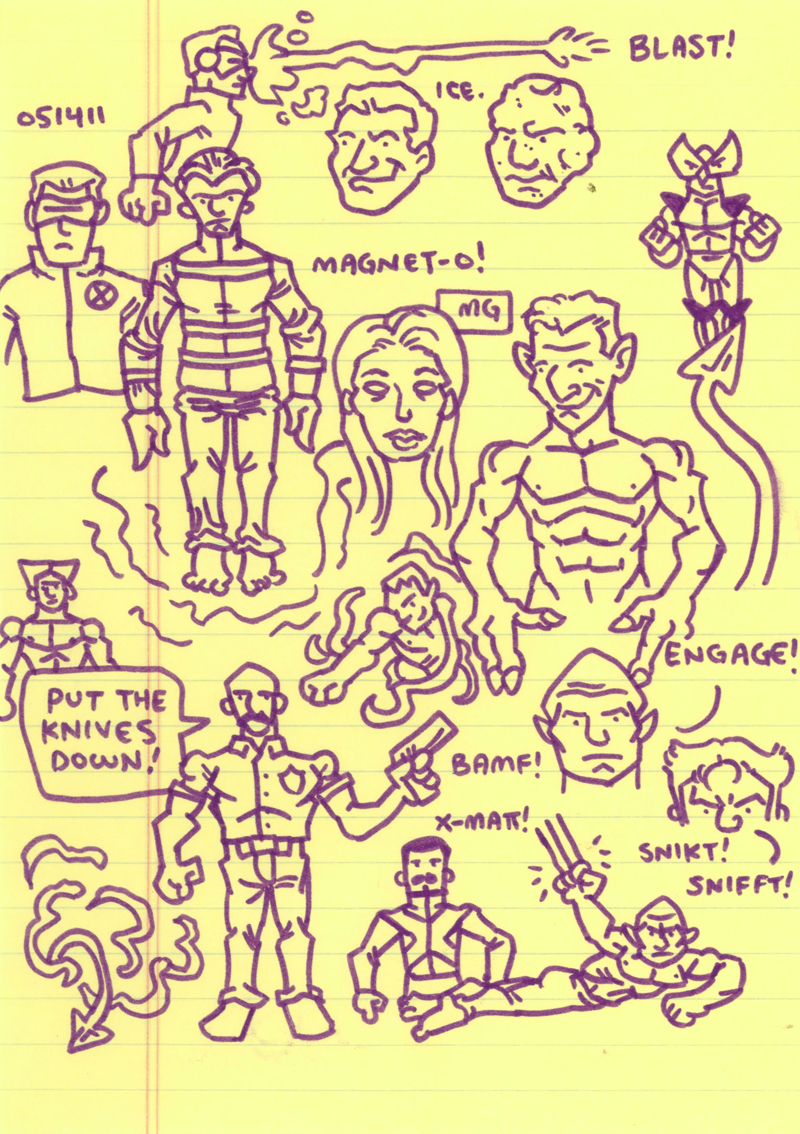 BLAST!
ICE.
051411
MAGNET-O!
MG
ENGAGE!
PUT THE
KNIVES
DOWN!
BAMF!
X-MATT!
SNIKT!
SNIFFT!